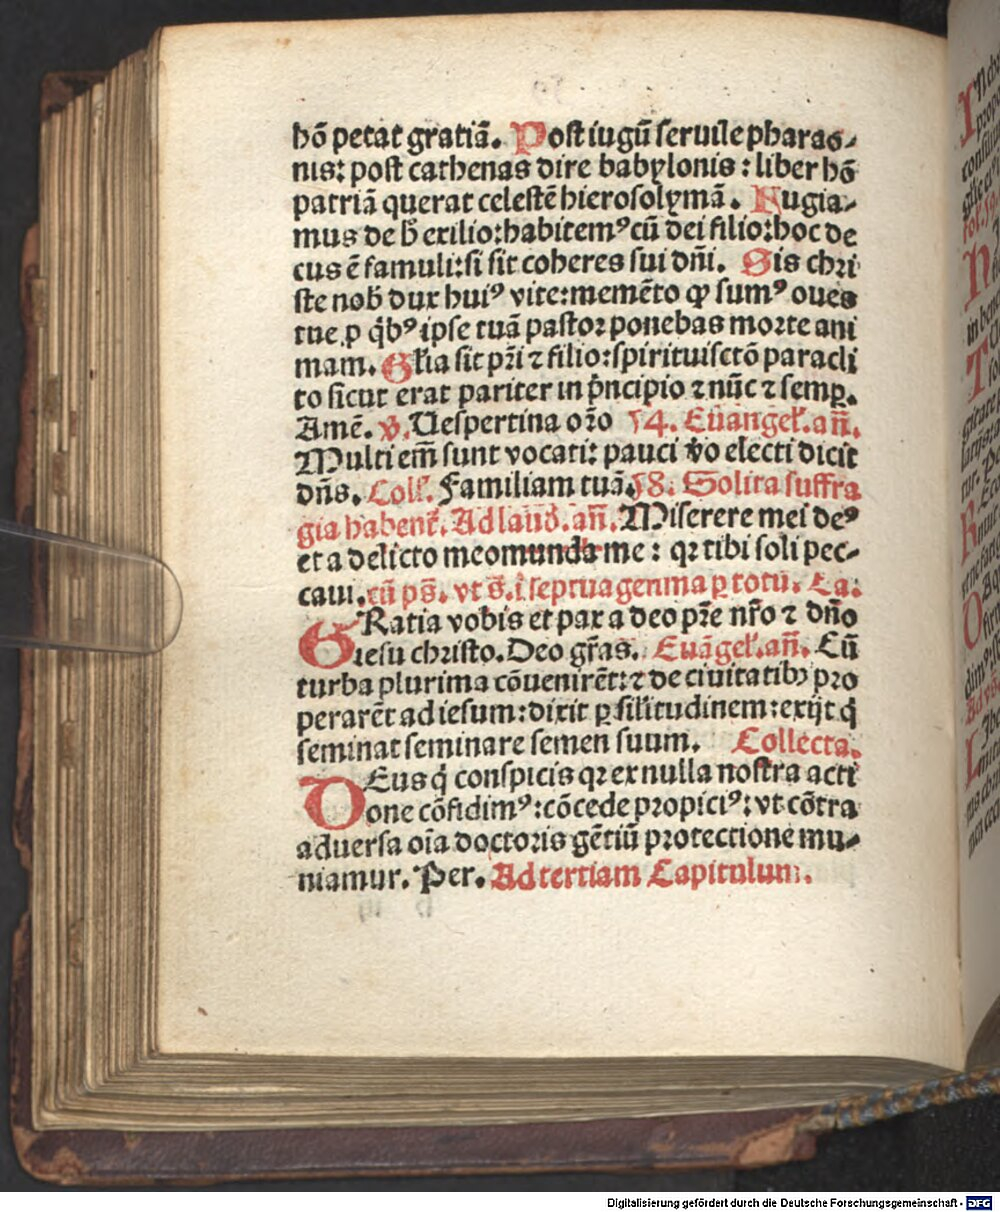 hō petat gratiā. Post iugū seruile pharao-
nis: post cathenas dire babylonis: liber hō
patriā querat celestē hierosolymā. Fugia-
mus de h̄ exilio: habitemꝰ cū dei filio: hoc de
cus ē famuli: si sit coheres sui dn̄i. Sis chri
ste nob̄ dux huiꝰ vite: memēto qꝫ sumꝰ oues
tue p̱ qb̄ꝰ ipse tuā pastor ponebas morte ani
mam. Gl̄ia sit pr̄i ⁊ filio: spirituisctō paracli
to sicut erat pariter in p̄ncipio ⁊ nūc ⁊ semꝑ.
Amē. v̄. Uespertina or̄o 14. Euāngel̄. an̄.
Multi em̄ sunt vocati: pauci v̄o electi dicit
dn̄s. Coll̄. Familiam tuā. 18. Solita suffra
gia habent̄. Ad laud̄. an̄. Miserere mei deꝰ
et a delicto meo munda me: qꝛ tibi soli pec-
caui. cū ps̄. vt s̄. ī septuagenma ꝑ totū. Ca:
GRatia vobis et pax a deo pr̄e nr̄o ⁊ dn̄o
iesu christo. Deo gr̄as. Euāgel̄. an̄. Cū
turba plurima cōuenirēt: ⁊ de ciuitatibꝫ pro
perarēt ad iesum: dixit ꝑ sil̄itudinem: exijt q̄
seminat seminare semen suum. Collecta.
DEus q̄ conspicis qꝛ ex nulla nostra acti
one cōfidimꝰ: cōcede propiciꝰ: vt cōtra
aduersa oīa doctoris gētiū protectione mu-
niamur. Per. Ad tertiam Capitulum.
Digitalisierung gefördert durch die Deutsche Forschungsgemeinschaft - DFG